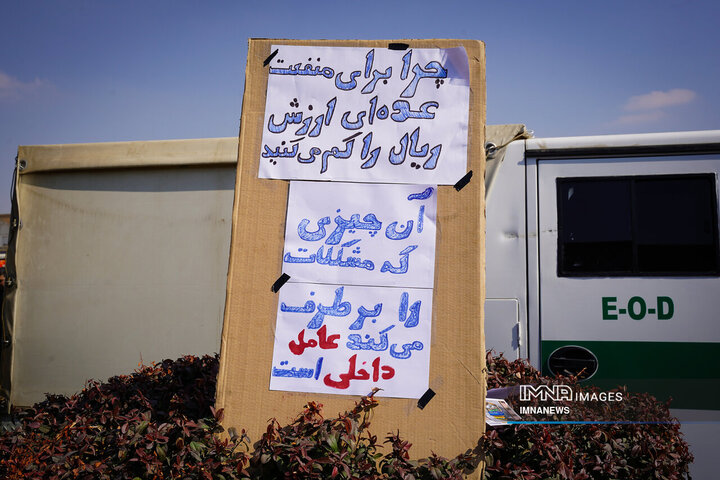 چرا برای منفعت
عده‌ای ارزش
ریال را کم می‌کنید
آن چیزی
که مشکلات
را برطرف
می‌کند عامل
داخلی است
E-O-D
IMNA IMAGES
IMNANEWS